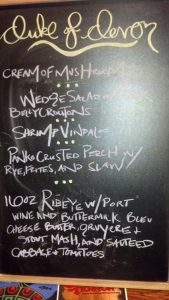 Duke of Devon
CREAM OF MUSHROOM
WEDGE SALAD w/
CROUTONS
SHRIMP VINDALOO
PANKO CRUSTED PERCH w/
RYE, FRITES, AND SLAW
11 OOZ RIBEYE w/ PORT
WINE AND BUTTERMILK BLEU
CHEESE BUTTER, GRUYERE &
STOUT MASH, AND SAUTEED
CABBAGE & TOMATOES